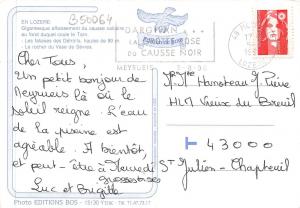 EN LOZERE
B50064
Gigantesque affouillement du causse calcaire
au fond duquel coule le Tarn.
- Les falaises des Détroits, hautes de 90 m
- Le rocher du Vase de Sèvres.
DARGILAN
LA
ROSE
DU CAUSSE NOIR
MEYRUEIS
Cher Tous,
Un petit bonjour de
Meyrueis là où le
soleil reigne. L'eau
de la piscine est
agréable. A bientôt,
et peut-être à Samedi
Grosses bises
Luc et Brigitte
Pierre
HLM Vieux du Breuil
43000
St Julien-Chapteuil
Photo EDITIONS BOS - 15130 Ytrac